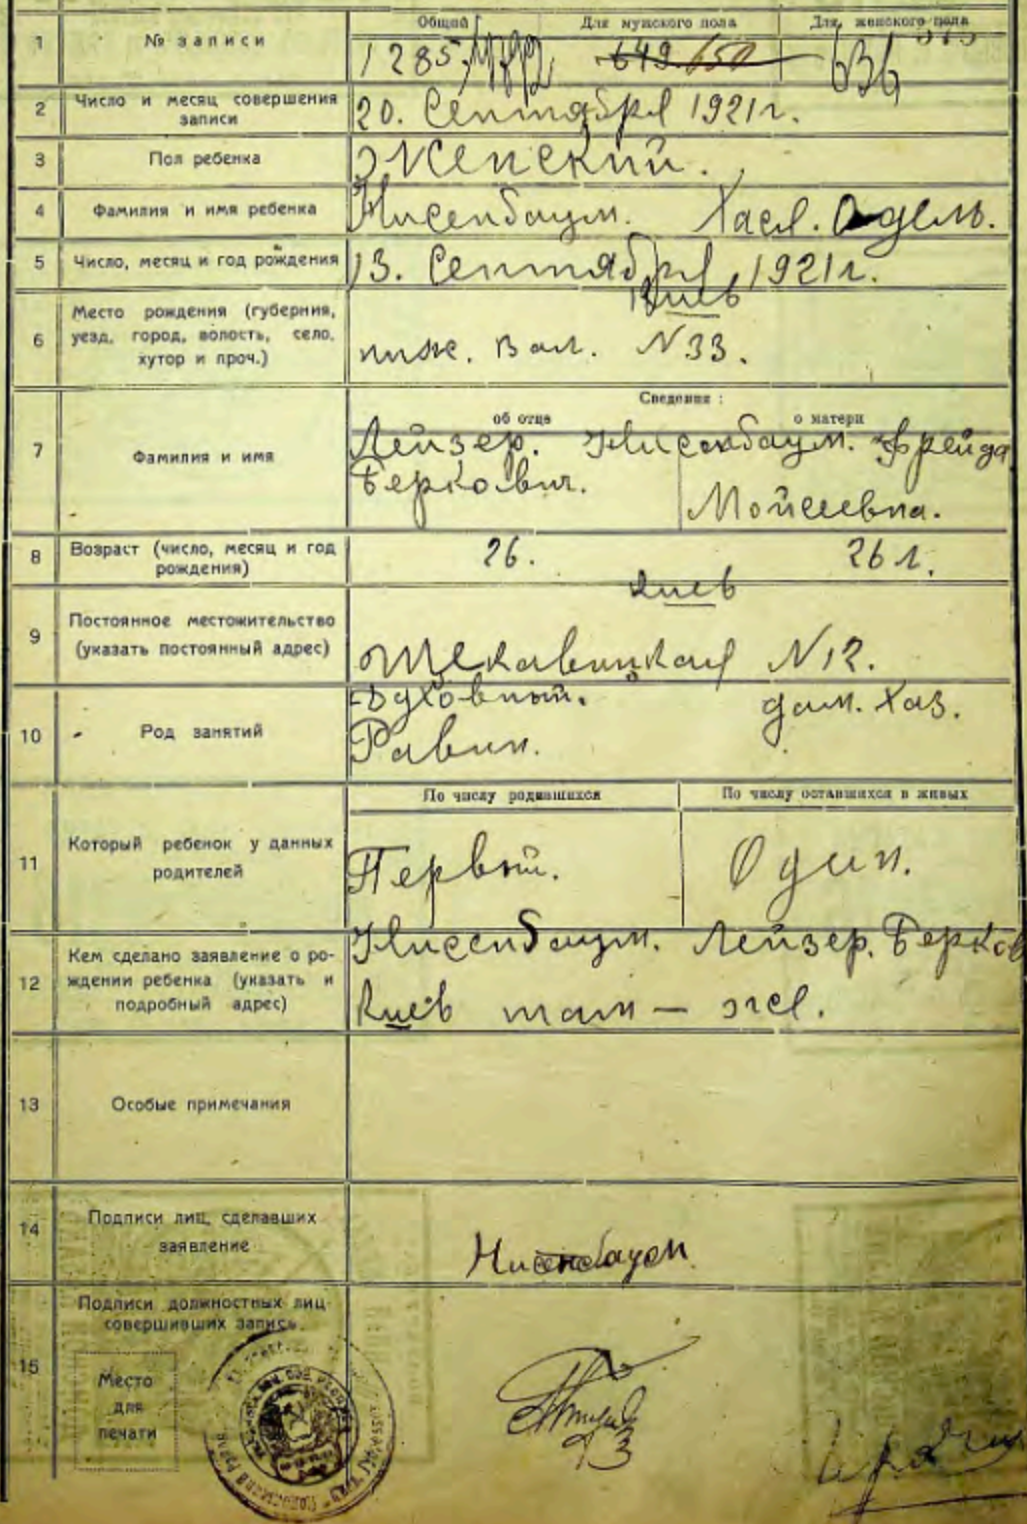 Общий Для мужского пола Для женского пола
1 № записи
1285 649 650 636
2 Число и месяц совершения
записи
20. Сентября 1921 г.
3 Пол ребенка Женский.
4 Фамилия и имя ребенка Нисенбаум. Хася. Адель.
5 Число, месяц и год рождения 13. Сентября 1921 г.
6 Место рождения (губерния,
уезд, город, волость, село,
хутор и проч.)
Киев
ниж. Вал. N 33.
Сведения:
об отце о матери
7 Фамилия и имя
Лейзер. Ниссенбаум. Фрейда
Беркович.
Мойсеевна.
8 Возраст (число, месяц и год
рождения)
26. 26 л.
9 Постоянное местожительство
(указать постоянный адрес)
Киев
Щекавицкая N 12.
10 Род занятий
Духовный. дом. Хаз.
Равин.
По числу родившихся По числу оставшихся в живых
11 Который ребенок у данных
родителей
Первый. Один.
12 Кем сделано заявление о ро-
ждении ребенка (указать и
подробный адрес)
Ниссенбаум. Лейзер. Берков
Киев там — же.
13 Особые примечания
14 Подписи лиц, сделавших
заявление
Нисенбаум
15 Подписи должностных лиц
совершивших запись.
Место
для
печати